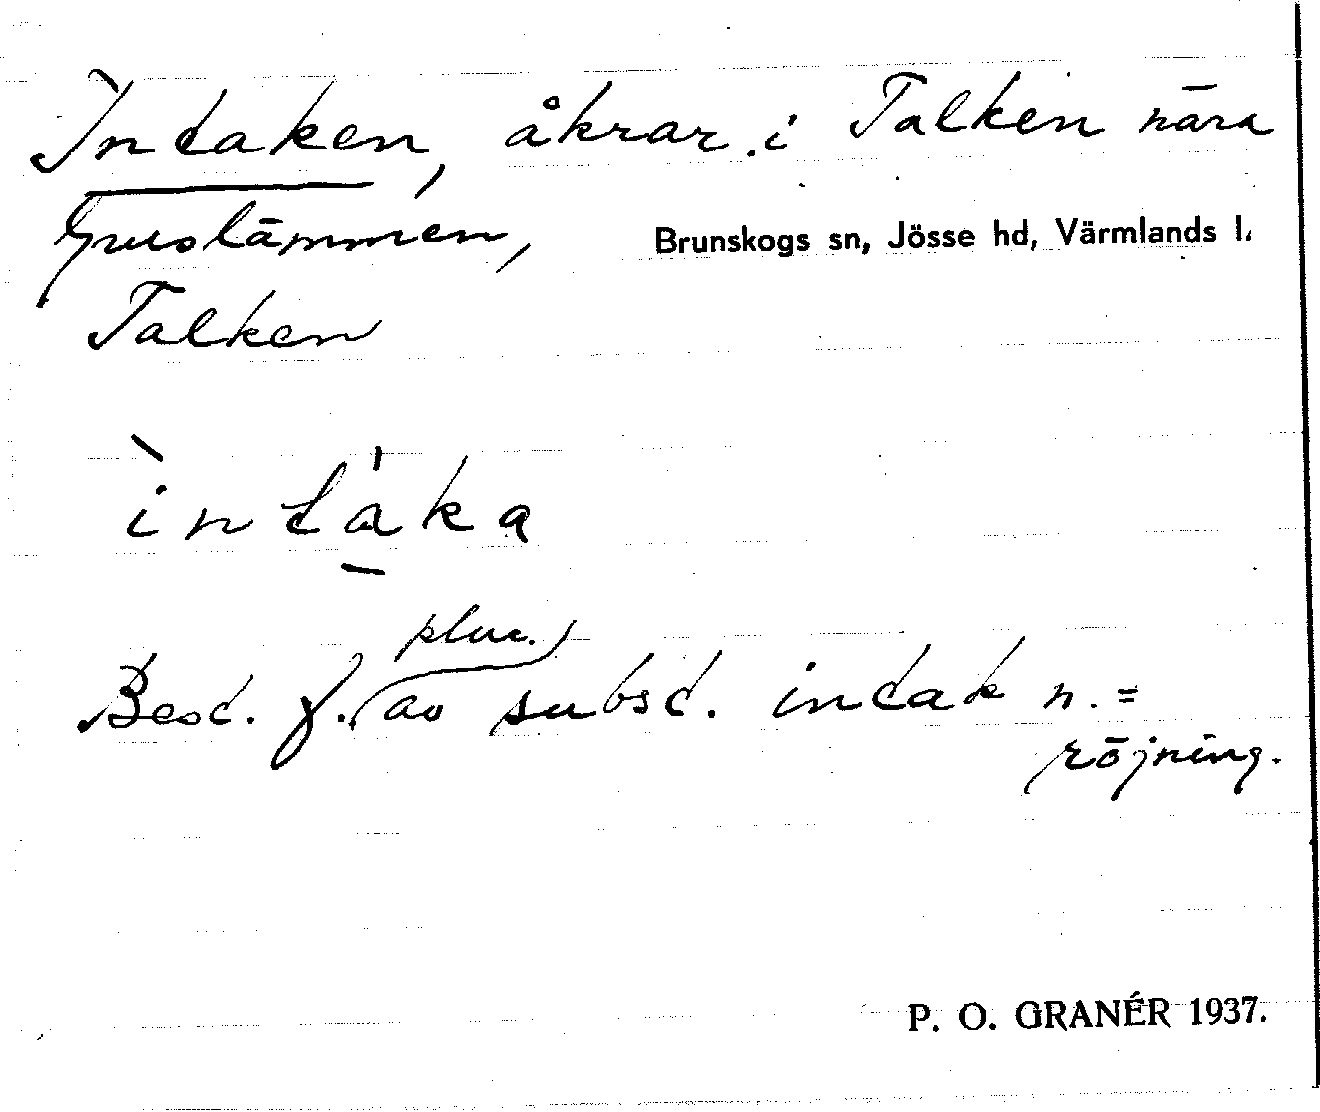 Intaken, åkrar i Talken nära
Gruvlämmen,
Brunskogs sn, Jösse hd, Värmlands l.
Talken
intaka
plur.
Best. f. av subst. intak n. =
röjning.
P. O. GRANÉR 1937.